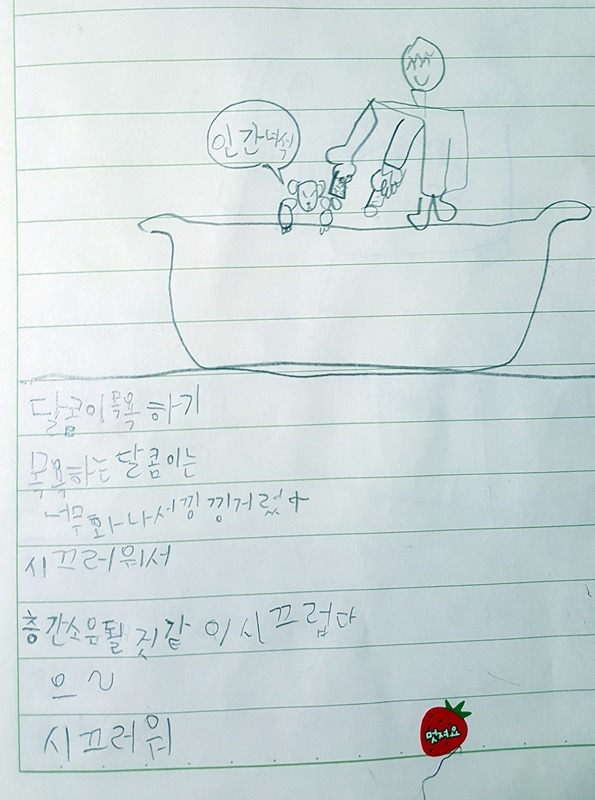 인간녀석
달콤이목욕하기
목욕하는달콤이는
너무화나서낑낑거렸다
시끄러워서
층간소음될짓같이시끄럽다
으~
시끄러워
멋져요